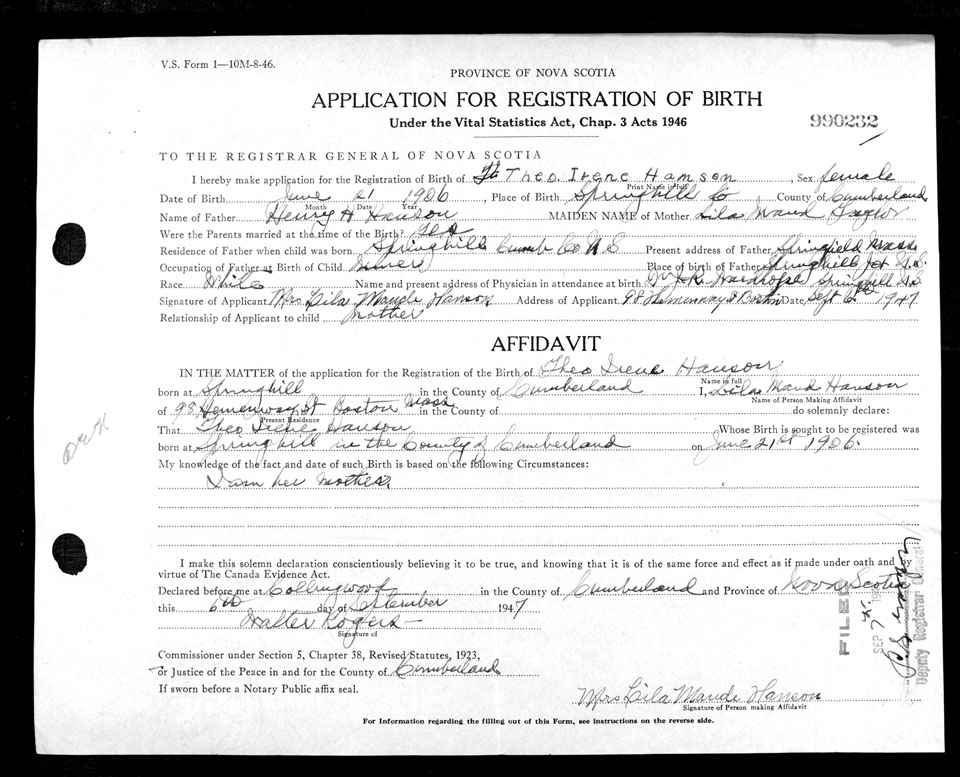 V.S. Form 1—10M-8-46.
PROVINCE OF NOVA SCOTIA
APPLICATION FOR REGISTRATION OF BIRTH
Under the Vital Statistics Act, Chap. 3 Acts 1946
990232
TO THE REGISTRAR GENERAL OF NOVA SCOTIA
I hereby make application for the Registration of Birth of Theo Irene Hanson, Sex female
Print Name in full
Date of Birth June 21 1906, Place of Birth Springhill County of Cumberland
Month Date Year
Name of Father Henry H Hanson MAIDEN NAME of Mother Lila Maud Taylor
Were the Parents married at the time of the Birth? Yes
Residence of Father when child was born Springhill Cumb Co N S Present address of Father Springfield Mass
Occupation of Father at Birth of Child Miner Place of birth of Father Springhill Jct N.S.
Race White Name and present address of Physician in attendance at birth Wardrope Springhill N.S.
Signature of Applicant Mrs Lila Maude Hanson Address of Applicant 98 Hemenway St Boston Date Sept 6th 1947
Relationship of Applicant to child mother
AFFIDAVIT
IN THE MATTER of the application for the Registration of the Birth of Theo Irene Hanson
Name in full
born at Springhill in the County of Cumberland I, Lila Maud Hanson
Name of Person Making Affidavit
of 98 Hemenway St Boston Mass in the County of do solemnly declare:
Present Residence
That Theo Irene Hanson Whose Birth is sought to be registered was
born at Springhill in the County of Cumberland on June 21st 1906.
My knowledge of the fact and date of such Birth is based on the following Circumstances:
I am her mother.
I make this solemn declaration conscientiously believing it to be true, and knowing that it is of the same force and effect as if made under oath and by
virtue of The Canada Evidence Act.
Declared before me at Collingwood in the County of Cumberland and Province of Nova Scotia
this 6th day of September 1947
Walter Rogers
Signature of
Commissioner under Section 5, Chapter 38, Revised Statutes, 1923,
or Justice of the Peace in and for the County of Cumberland
If sworn before a Notary Public affix seal.
Mrs Lila Maude Hanson
Signature of Person making Affidavit
For Information regarding the filling out of this Form, see instructions on the reverse side.
FILED
SEP 7
Deputy Registrar General